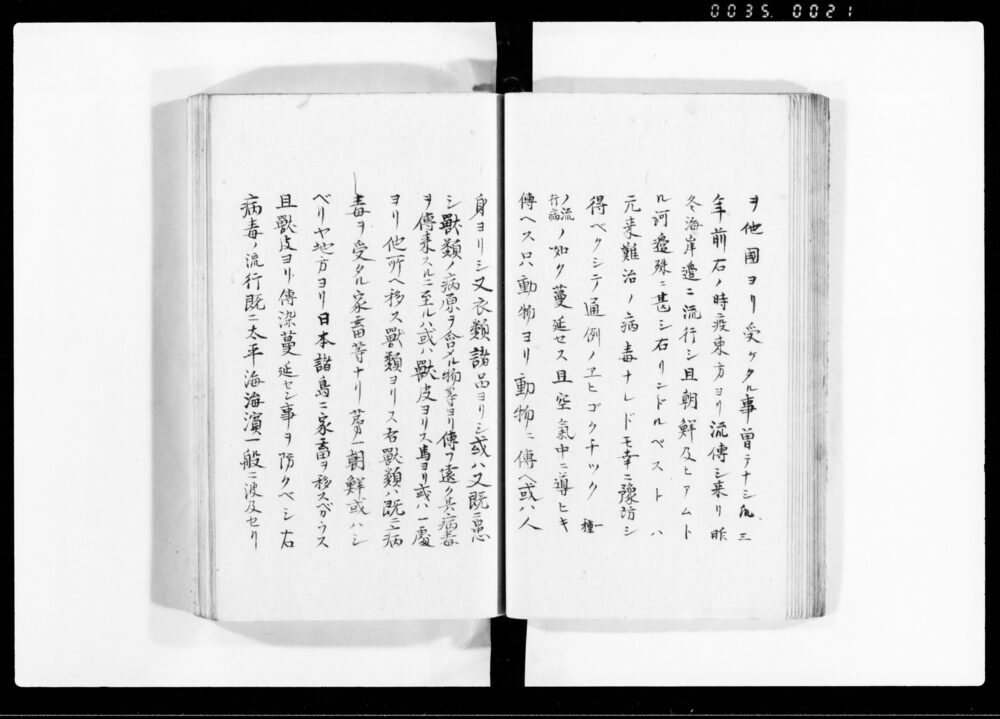 0035. 0021
ヲ他國ヨリ受ケタル事曽テナシ凡三
年前右ノ時疫東方ヨリ流傳シ来リ昨
冬海岸邉ニ流行シ且朝鮮及ヒアムト
ル河邉殊ニ甚シ右リンドルペストハ
元来難治ノ病毒ナレドモ幸ニ豫防シ
得ベクシテ通例ノヱヒゴクチック一種
ノ流行病ノ如ク蔓延セス且空氣中ニ導ヒキ
傳ヘス只動物ヨリ動物ニ傳ヘ或ハ人
身ヨリシ又衣類諸品ヨリシ或ハ又既ニ患
シ獸類ノ病原ヲ含メル物等ヨリ傳フ遠ク其病毒
ヲ傳来スルニ至ルハ或ハ獸皮ヨリス馬ヨリ或ハ一處
ヨリ他所ヘ移ス獸類ヨリス右獸類ハ既ニ病
毒ヲ受タル家畜等ナリ第一朝鮮或ハシ
ベリヤ地方ヨリ日本諸島ニ家畜ヲ移スベカラス
且獸皮ヨリ傳染蔓延セシ事ヲ防クベシ右
病毒ノ流行既ニ太平海海濱一般ニ波及セリ